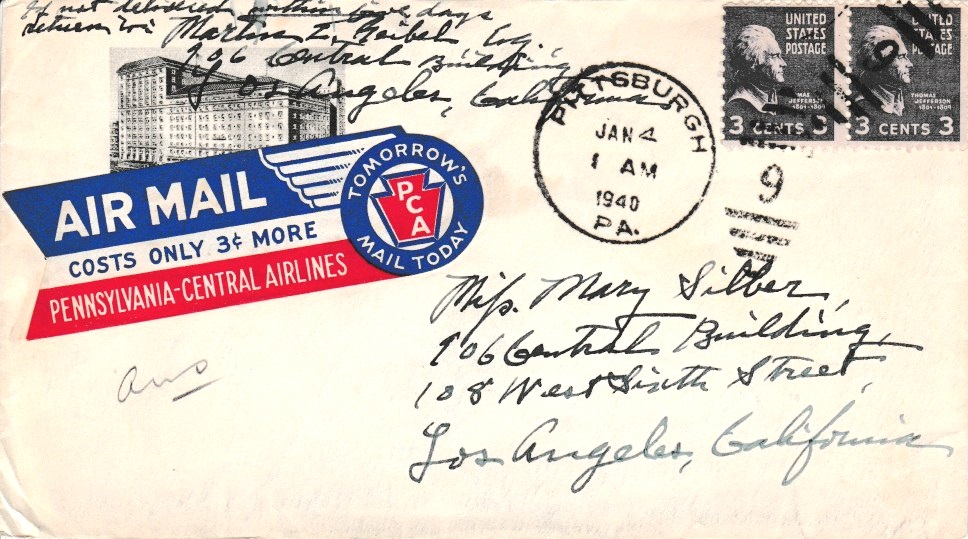 If not delivered within five days
return to: Martin L. Geibel Esq.
906 Central Building,
Los Angeles, California
UNITED
STATES
POSTAGE
THOMAS
JEFFERSON
1801-1809
3 CENTS 3
UNITED
STATES
POSTAGE
THOMAS
JEFFERSON
1801-1809
3 CENTS 3
PITTSBURGH
JAN 4
1 AM
1940
PA.
9
AIR MAIL
COSTS ONLY 3¢ MORE
PENNSYLVANIA-CENTRAL AIRLINES
TOMORROW'S
PCA
MAIL TODAY
Miss. Mary Silber,
906 Central Building,
108 West Sixth Street,
Los Angeles, California
ans